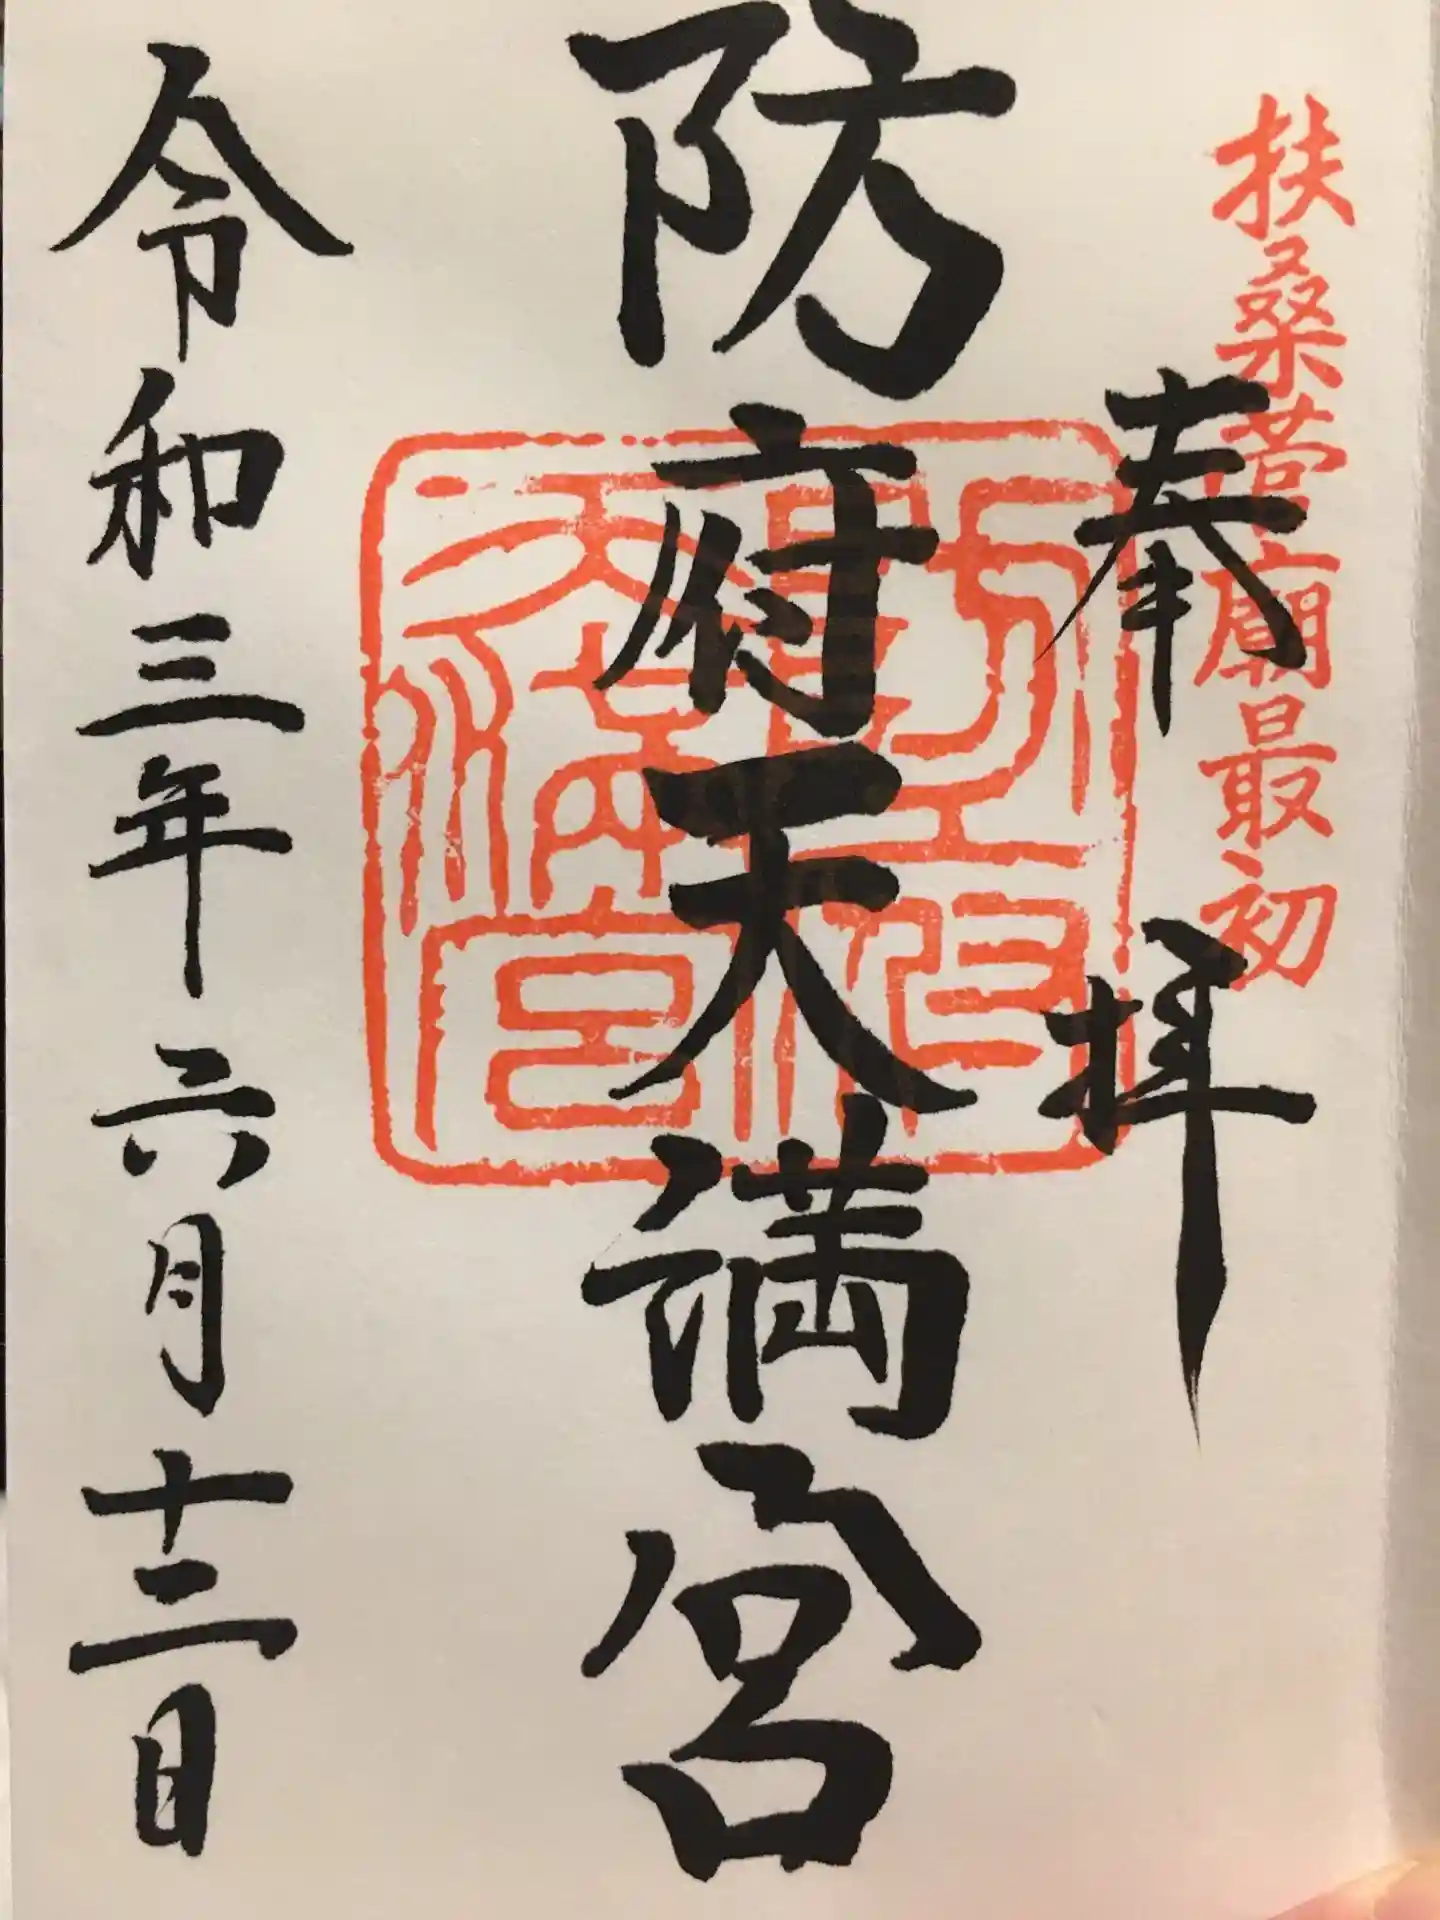 扶桑菅廟最初
奉拝
防府天満宮
令和三年六月十二日